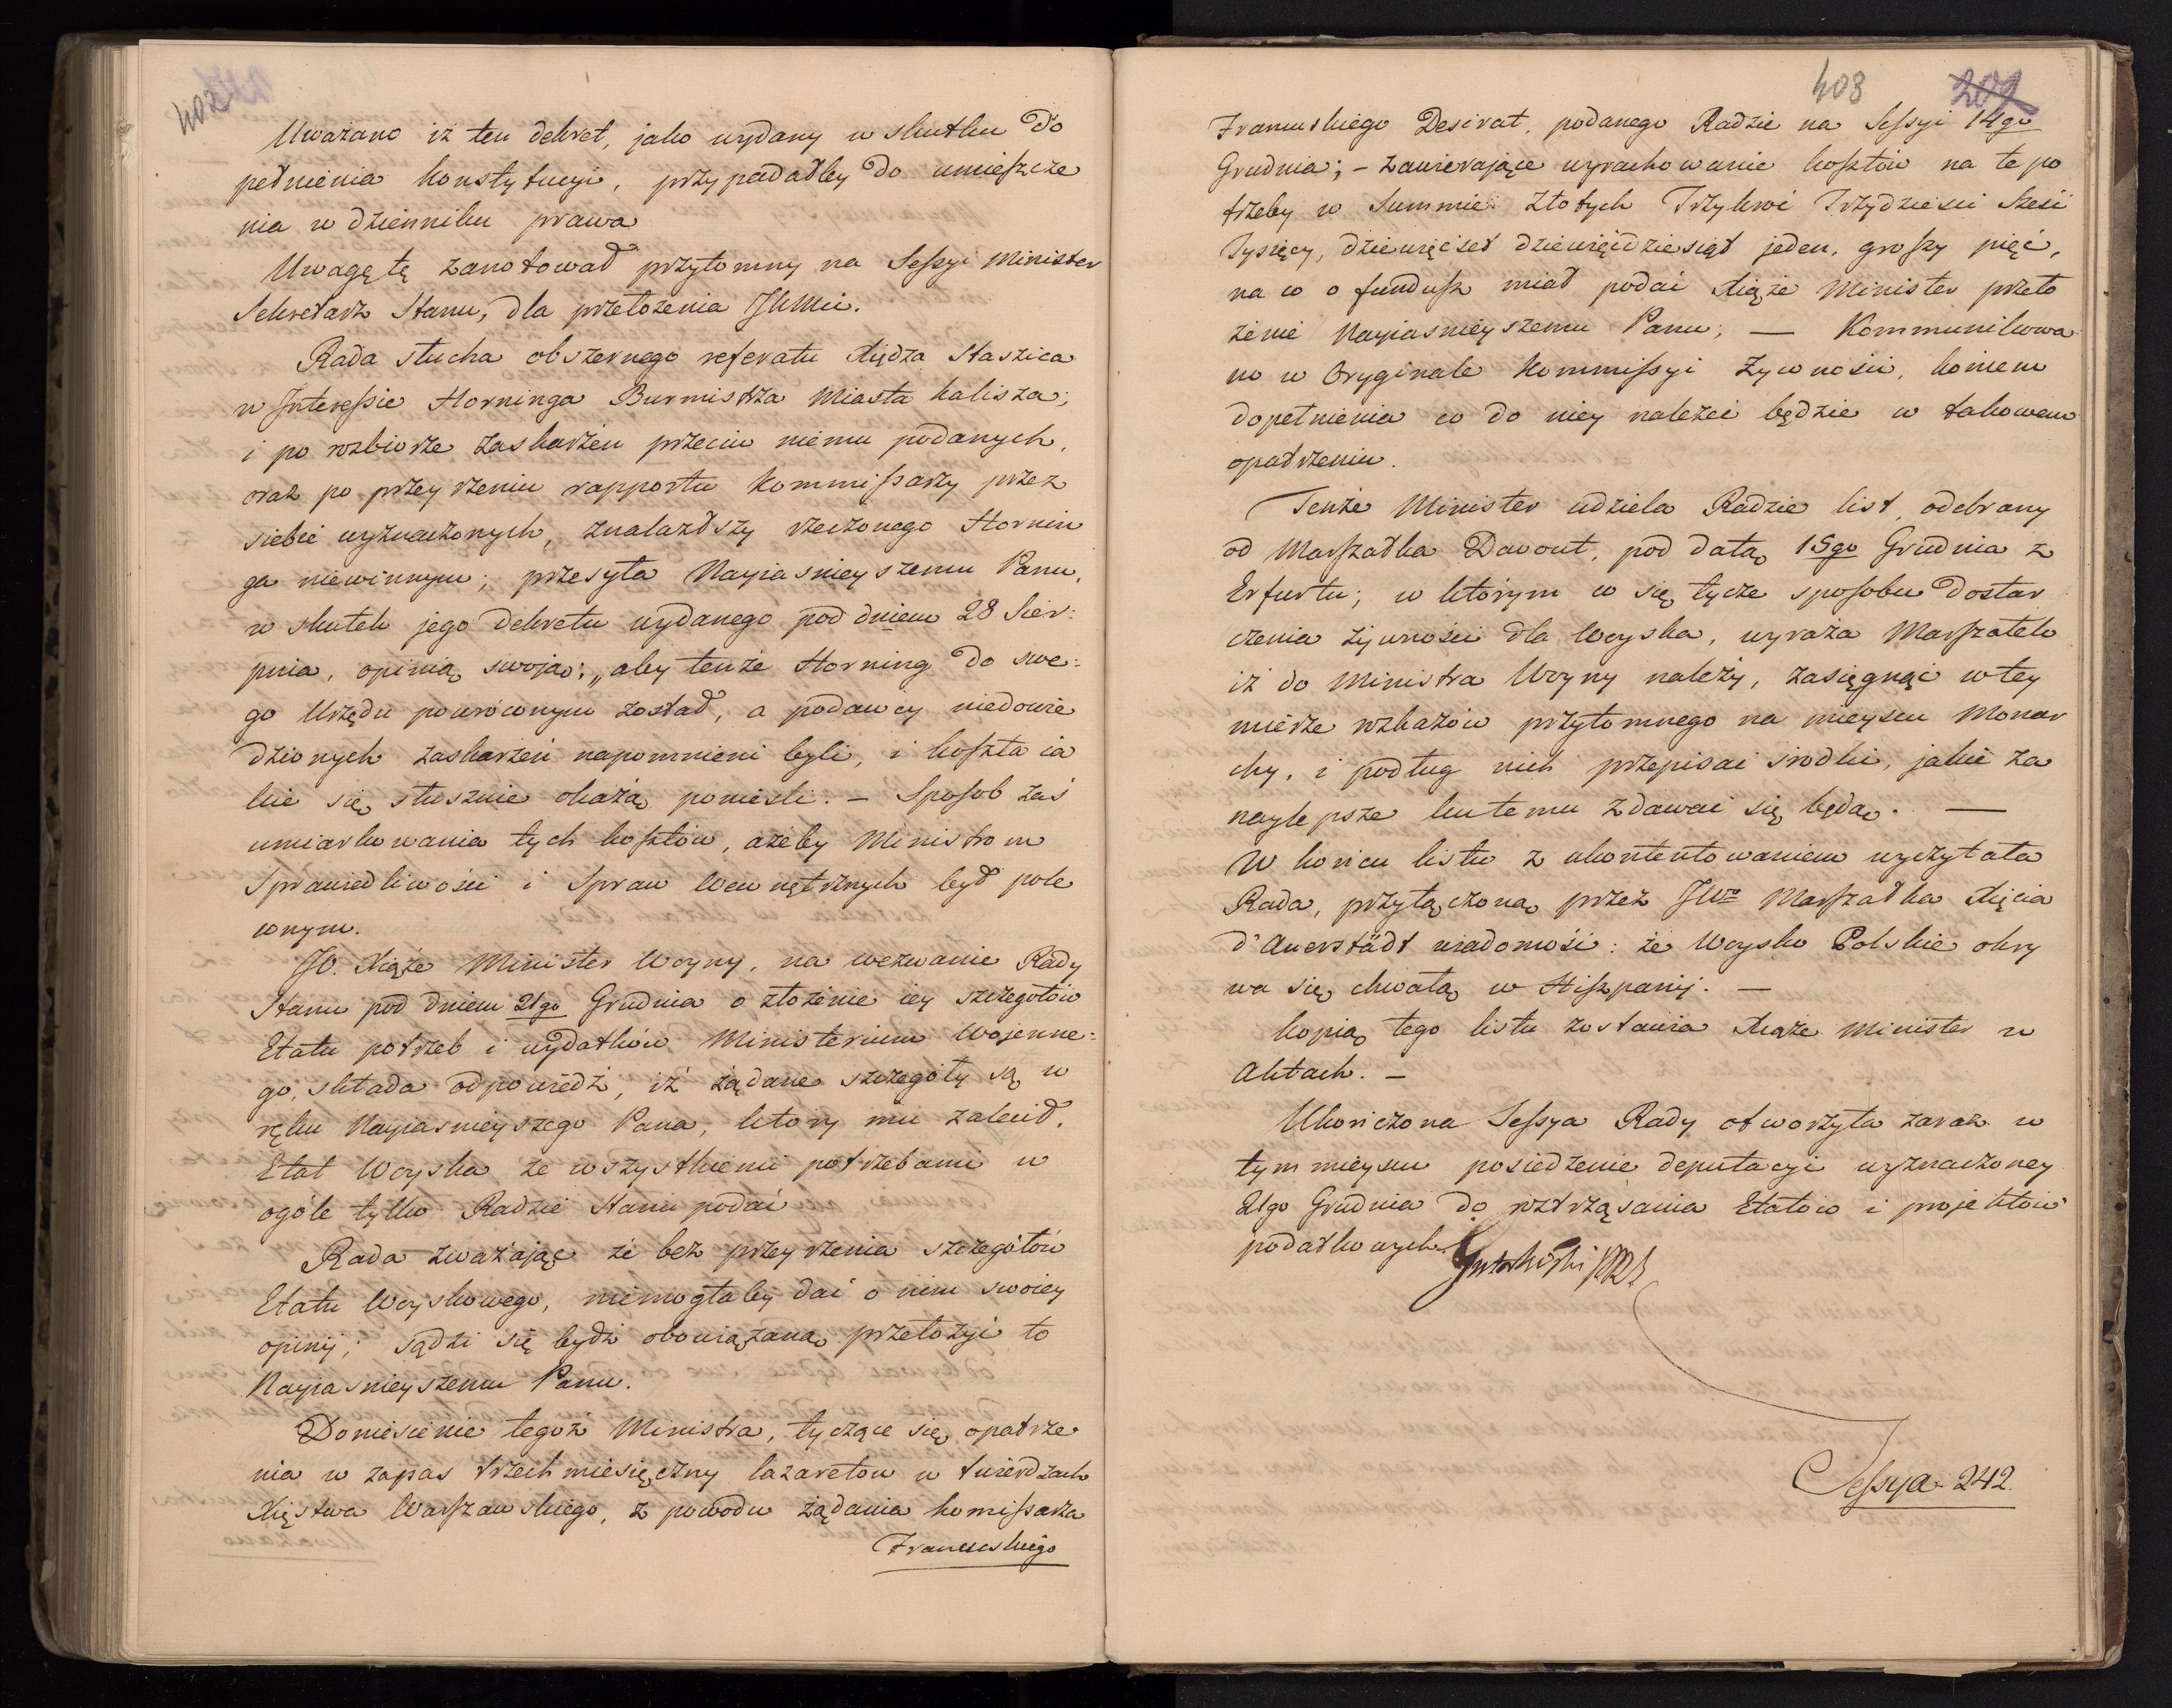 402
Uważano iż ten dekret, jako wydany w skutku do
pełnienia konstytucyi, przypadałby do umieszcze
nia w dzienniku prawa
Uwagę tę zanotował przytomny na Sessyi Minister
Sekretarz Stanu, dla przełożenia JKMci.
Rada słucha obszernego referatu Xiędza Staszica
w Interessie Horninga Burmistrza Miasta Kalisza;
i po rozbiorze zaskarżeń przeciw niemu podanych,
oraz po przeyrzeniu rapportu Kommissarzy przez
siebie wyznaczonych, znalazłszy rzeczonego Hornin
ga niewinnym; przesyła Nayiasnieyszemu Panu,
w skutek jego dekretu wydanego pod dniem 28 Sier:
pnia, opinią swoją: „aby tenże Horning do swe:
go Urzędu powróconym został, a podawcy niedowie
dzionych zaskarżeń napomnieni byli, i koszta ia
kie się słusznie okażą ponieśli. – Sposob zaś
umiarkowania tych kosztów, ażeby Ministrom
Sprawiedliwości i Spraw Wewnętrznych był pole
conym.
JO. Xiąże Minister Woyny, na wezwanie Rady
Stanu pod dniem 21go Grudnia o złożenie iey szczegółów
Etatu potrzeb i wydatków Ministerium Wojenne:
go, składa odpowiedź, iż żądane szczegóły są w
ręku Nayiasnieyszego Pana, ktory mu zalecił,
Etat Woyska ze wszystkiemi potrzebami w
ogóle tylko Radzie Stanu podać
Rada zważając że bez przeyrzenia szczegółów
Etatu Woyskowego, niemogłaby dać o nim swoiey
opinij; sądzi się bydź obowiązaną przełożyć to
Nayiasnieyszemu Panu.
Doniesienie tegoż Ministra, tyczące się opatrze
nia w zapas trzechmiesięczny lazaretow w twierdzach
Xięstwa Warszawskiego, z powodu żądania komissarza
Francuskiego
403 202
Francuskiego Desirat, podanego Radzie na Sessyi 14go
Grudnia; – zawierające wyrachowanie kosztów na te po
trzeby w Summie: złotych Trzykroć Trzydzieści Sześć
Tysięcy, dziewięćset dziewięćdziesiąt jeden, groszy pięć,
na co o fundusz miał podać Xiąże Minister przeło
żenie Nayiasnieyszemu Panu; — Kommunikowa
no w Oryginale Kommissyi Zywności, koncem
dopełnienia co do niey należeć będzie w takowem
opatrzeniu.
Tenże Minister udziela Radzie list, odebrany
od Marszałka Davout, pod datą 15go Grudnia z
Erfurtu; w którym co się tycze sposobu dostar
czenia żywności dla Woyska, wyraża Marszałek
iż do Ministra Woyny należy, zasięgnąć w tey
mierze rozkazów przytomnego na mieyscu Monar
chy, i podług nich przepisać środki, jakie za
naylepsze ku temu zdawać się będą. —
W końcu listu z ukontentowaniem wyczytała
Rada, przyłączoną przez JWo Marszałka Xięcia
d'Auerstädt wiadomość: że Woysko Polskie okry
wa się chwałą w Hiszpanij. —
Kopią tego listu zostawia Xiąże Minister w
Aktach. –
Ukończona Sessya Rady otworzyła zaraz w
tym mieyscu posiedzenie deputacyi wyznaczoney
21go Grudnia do roztrząsania Etatow i projektów
podatkowych.
Gutakowski PRS
Sessya 242.